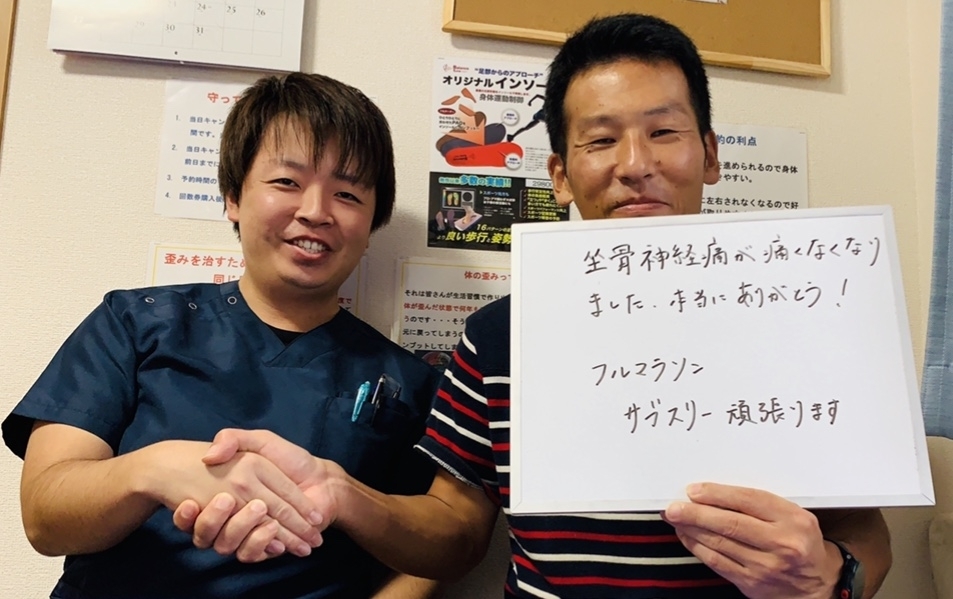 24
25
26
30
31
守って
1. 当日キャン
間です。
2. 当日キャン
前日までに
3. 予約時間の
4. 回数券購入後
"足部からのアプローチ"
オリジナルインソー
身体運動制御
多数の実績!!
29800
16パターンの
良い歩行と姿勢
的の利点
を進められるので身体
せやすい。
に左右されなくなるので好
歪みを治すため
同じ
体の歪みっ
それは皆さんが生活習慣で作り
体が歪んだ状態で何年も
うのです・・・そう
元に戻ってしまう
ンプットしてしま
坐骨神経痛が痛くなくなり
ました、本当にありがとう!
フルマラソン
サブスリー頑張ります